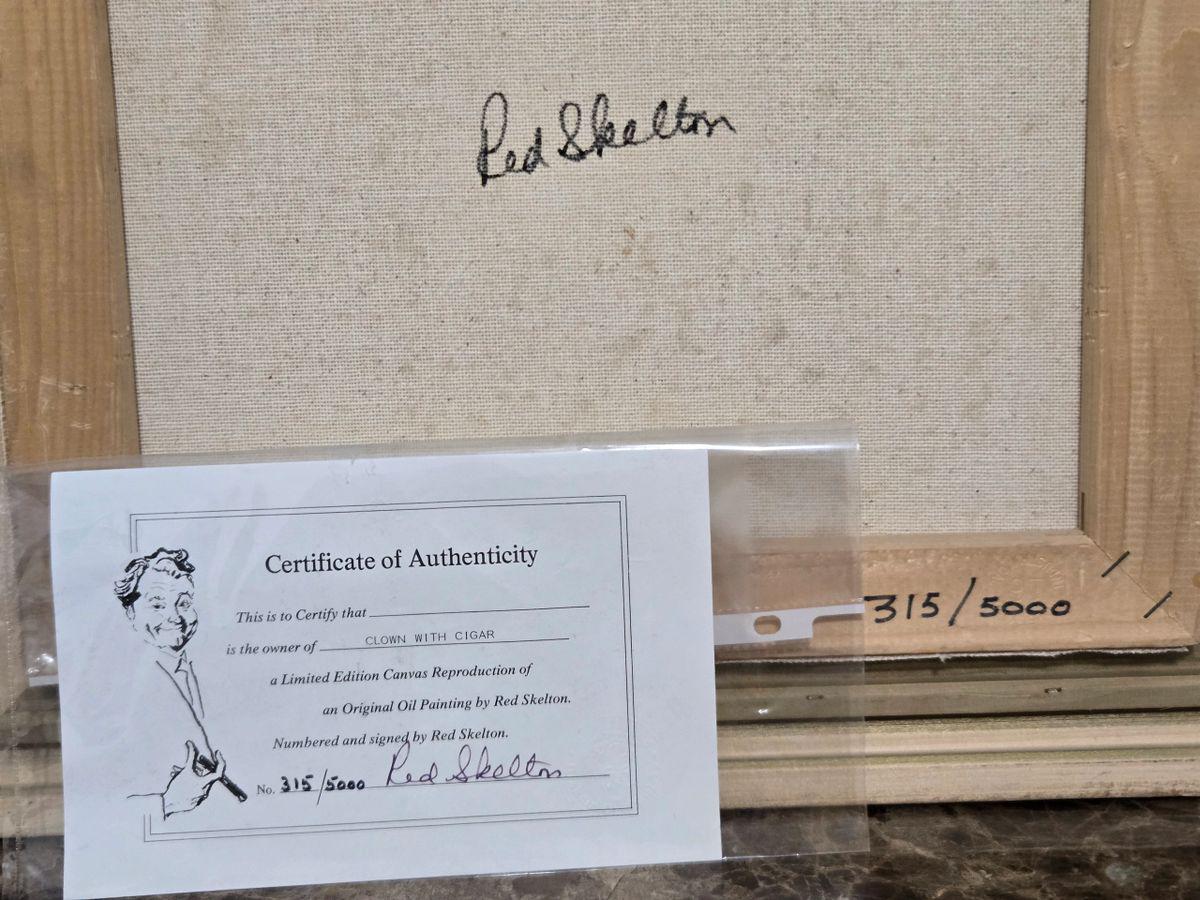 Red Skelton
315/5000
Certificate of Authenticity
This is to Certify that
is the owner of CLOWN WITH CIGAR
a Limited Edition Canvas Reproduction of
an Original Oil Painting by Red Skelton.
Numbered and signed by Red Skelton.
No. 315/5000 Red Skelton